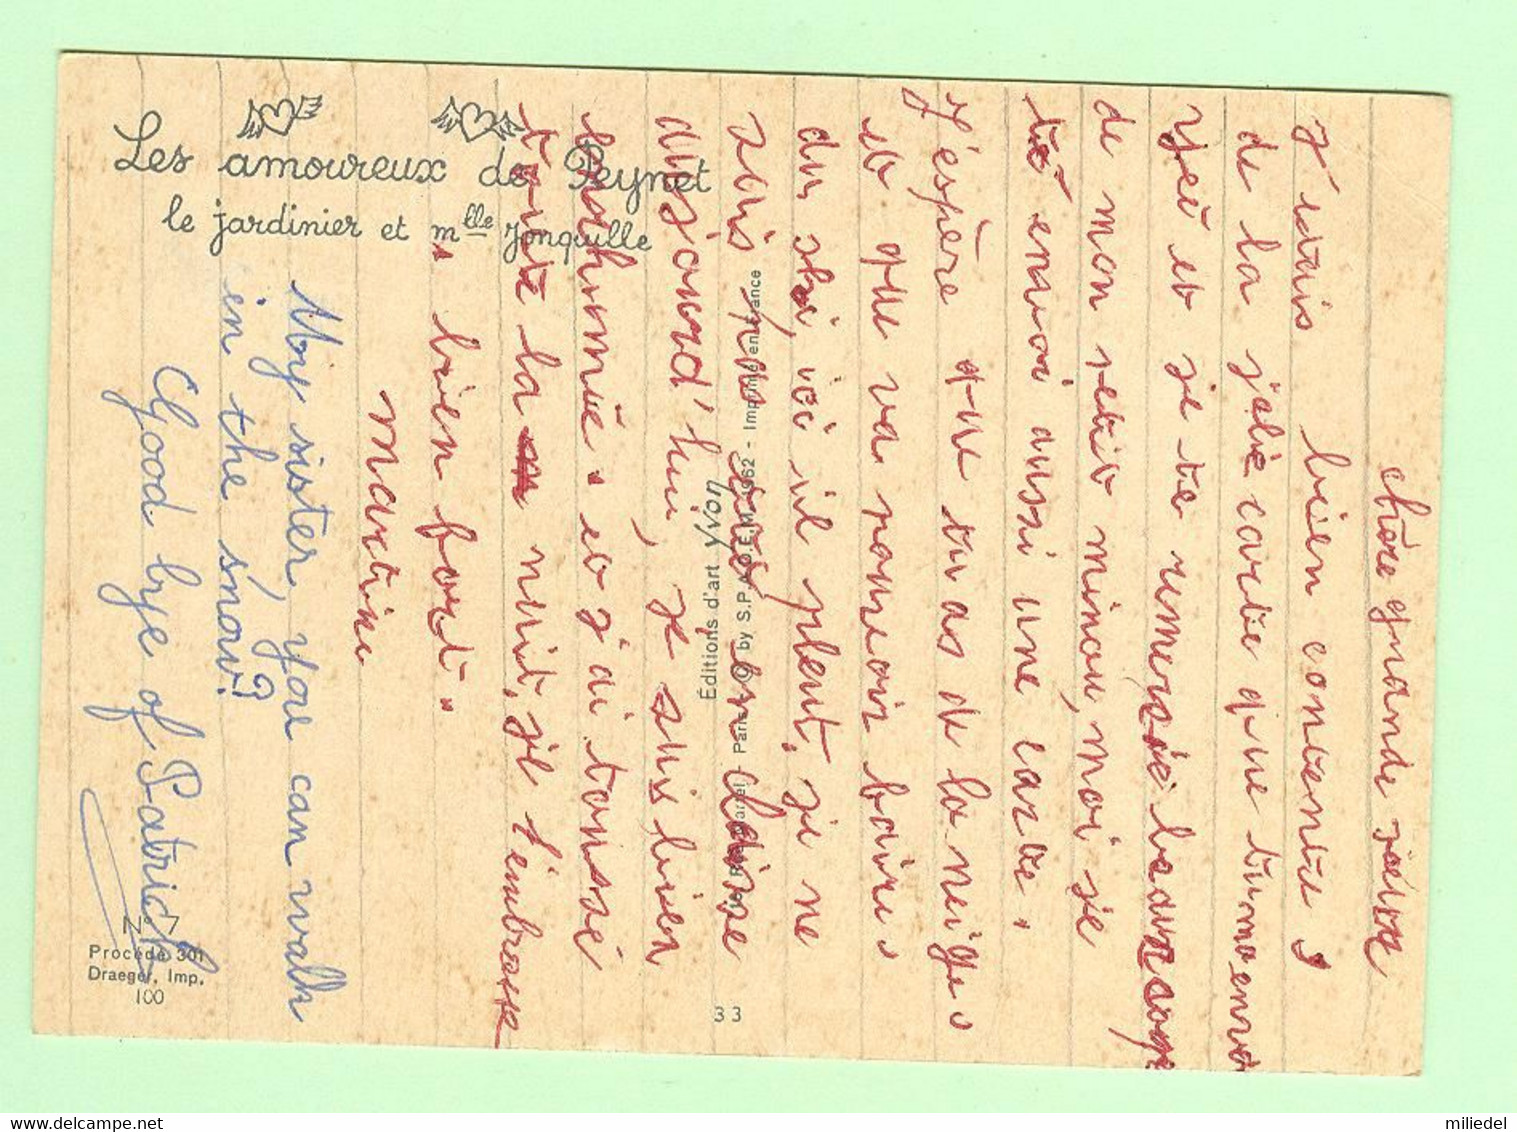 Les amoureux de Peynet
le jardinier et mlle Jonquille
chère grande sœur
J'étais bien contente
de la jolie carte que tu m'a envo
yeé et je te remersie beaucoup
de mon petit minou, moi je
té envoi aussi une carte.
J'espère que tu as de la neige
et que va pouvoir faire
du ski, ici il pleut. je ne
suis pas très en classe
aujourd'hui, je suis bien
enrhumée. et j'ai toussé
toute la nuit. je t'embrasse
bien fort.
martine
My sister, you can walk
in the snow?
Good bye of Patrick
Éditions d'art Yvon
Paris © by S.P.A.D.E.M. 1962 - Imprimé en France
33
N° 7
Procédé 301
Draeger, Imp.
100
miliedel